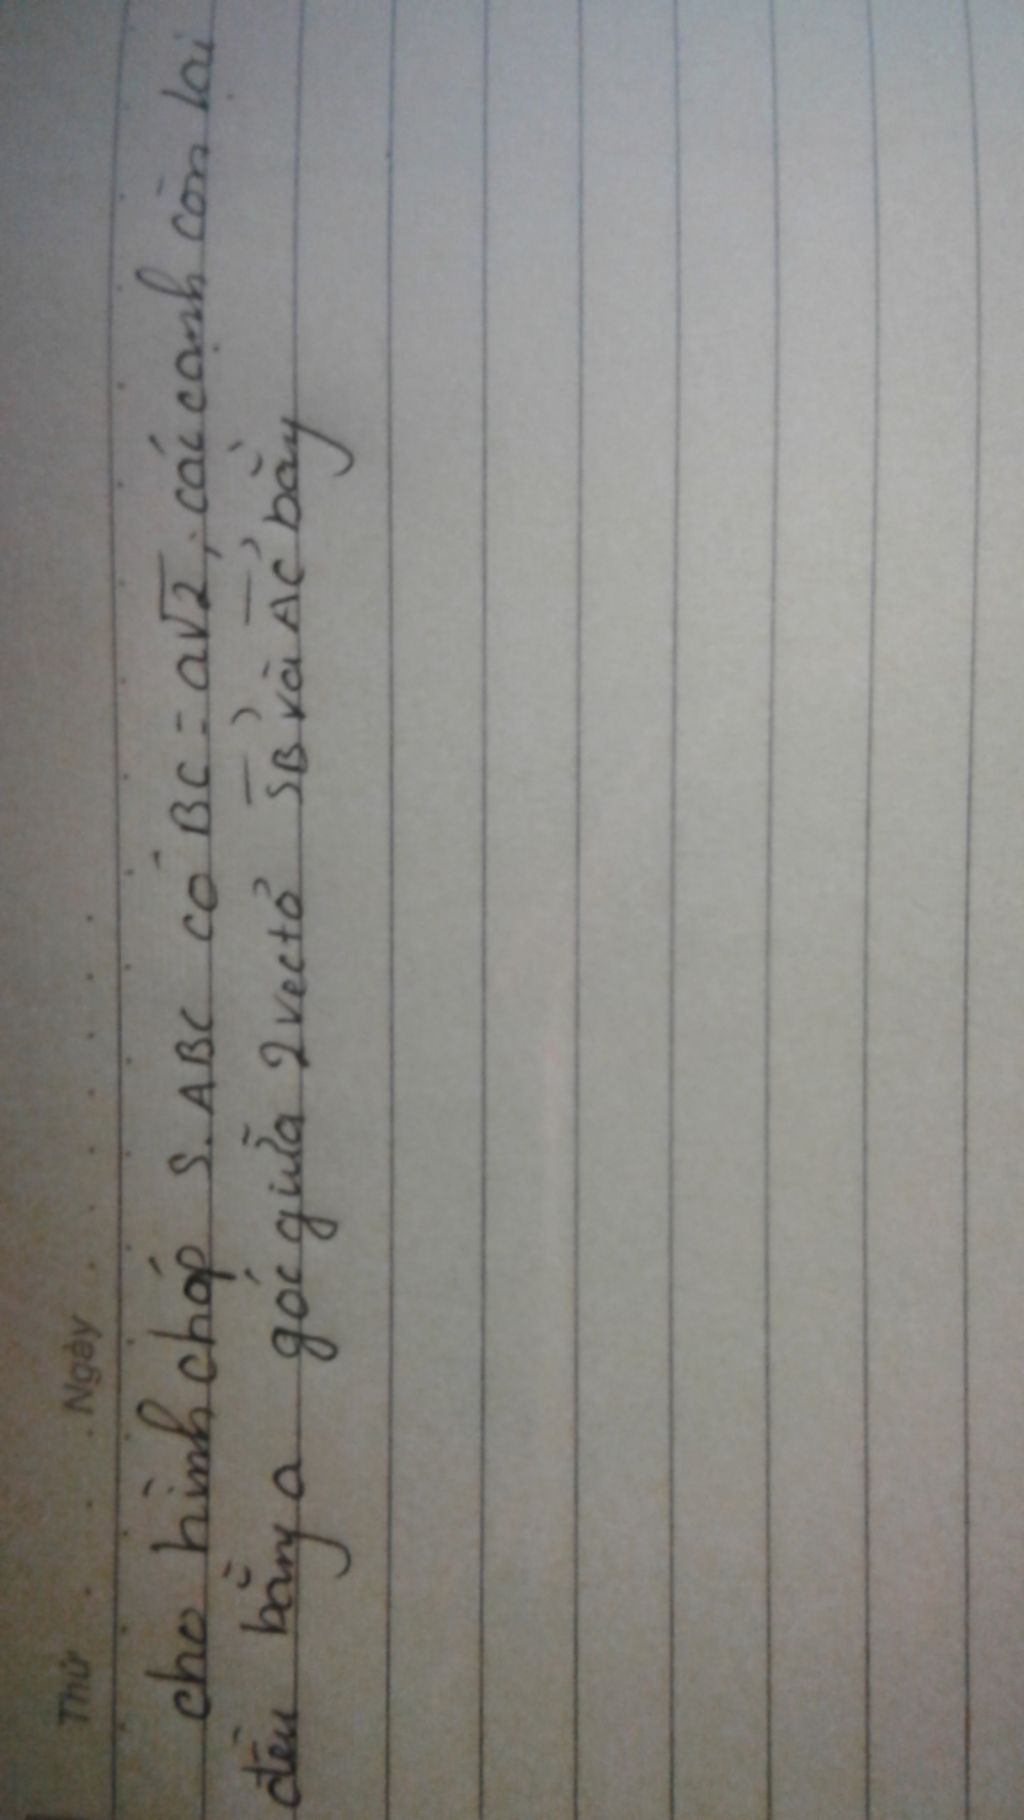 Thứ Ngày
cho hình chóp S.ABC có BC = a√2, các cạnh còn lại
đều bằng a góc giữa 2 vectơ SB⃗ và AC⃗ bằng